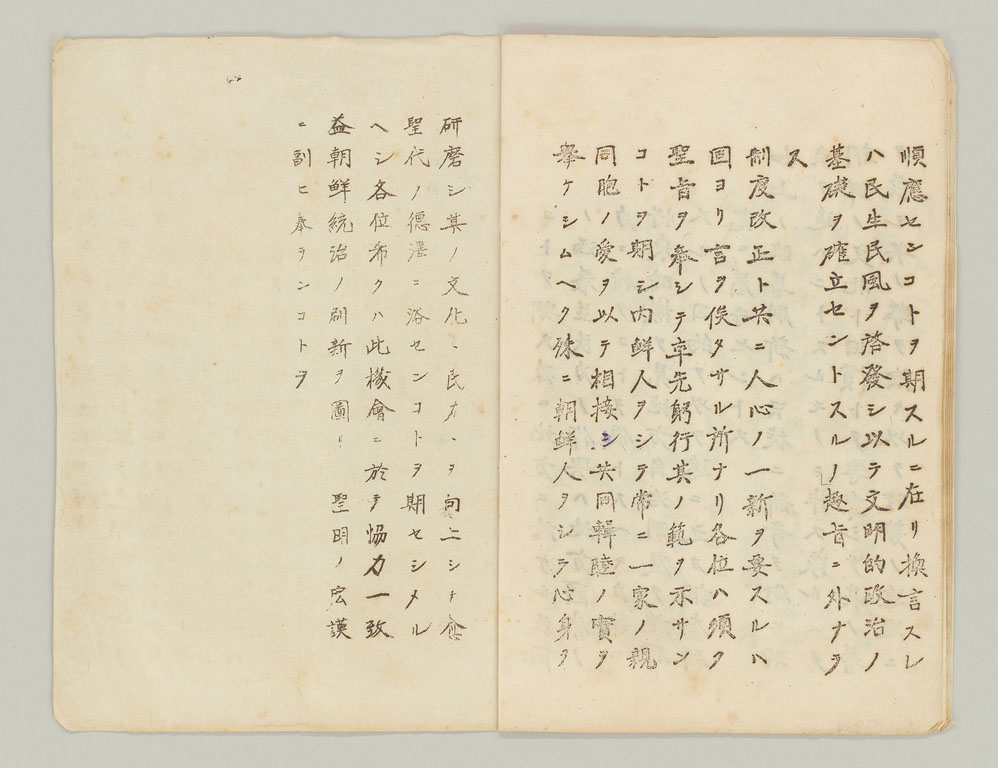 順應センコトヲ期スルニ在リ換言スレ
ハ民生民風ヲ啓發シ以テ文明的政治ノ
基礎ヲ確立セントスルノ趣旨ニ外ナラ
ス
制度改正ト共ニ人心ノ一新ヲ要スルハ
固ヨリ言ヲ俟タサル所ナリ各位ハ須ク
聖旨ヲ奉シテ率先躬行其ノ範ヲ示サン
コトヲ期シ、内鮮人ヲシテ常ニ一家ノ親
同胞ノ愛ヲ以テ相接シ共同輯睦ノ實ヲ
擧ケシムヘク殊ニ朝鮮人ヲシテ心身ヲ
研磨シ其ノ文化、民力、ヲ向上シテ愈
聖代ノ德澤ニ浴センコトヲ期セシメル
ヘシ各位希クハ此機會ニ於テ協力一致
益朝鮮統治ノ刷新ヲ圖リ聖明ノ宏謨
ニ副ヒ奉ランコトヲ